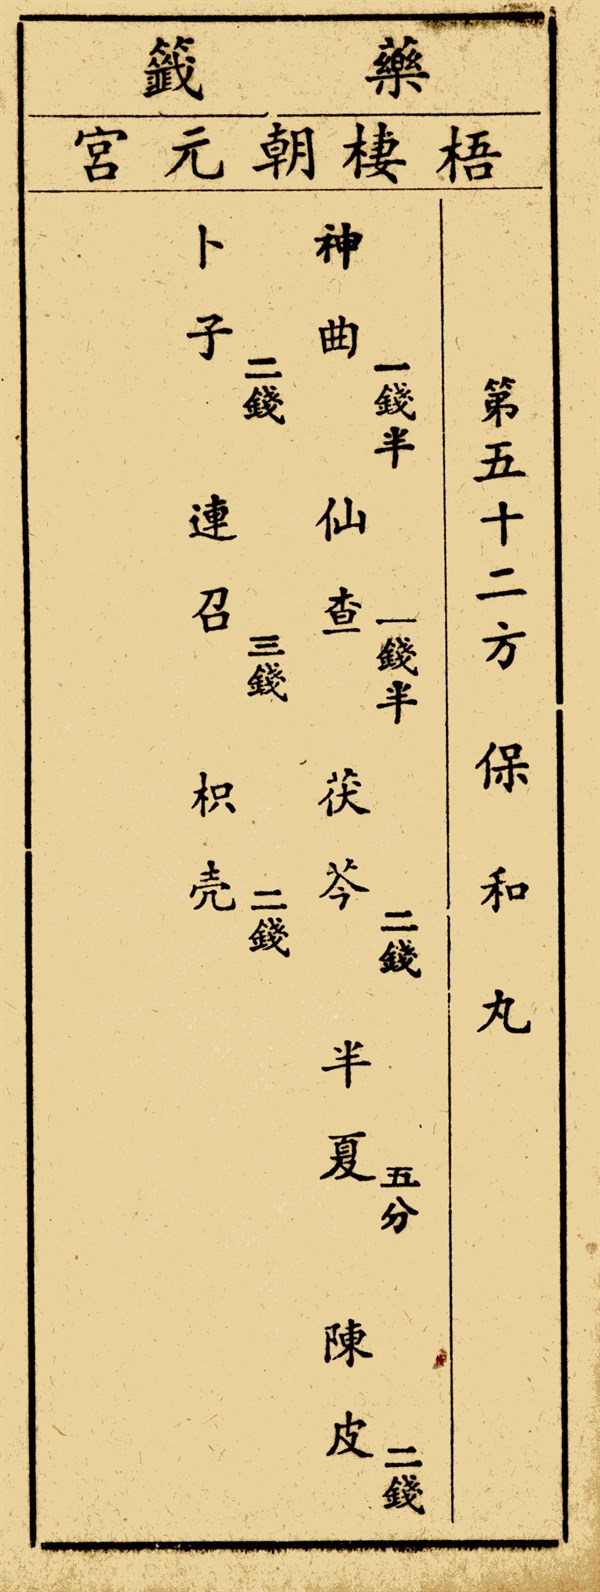 藥籤
梧棲朝元宮
第五十二方 保和丸
神曲 一錢半 仙查 一錢半 茯苓 二錢 半夏 五分 陳皮 二錢
卜子 二錢 連召 三錢 枳壳 二錢